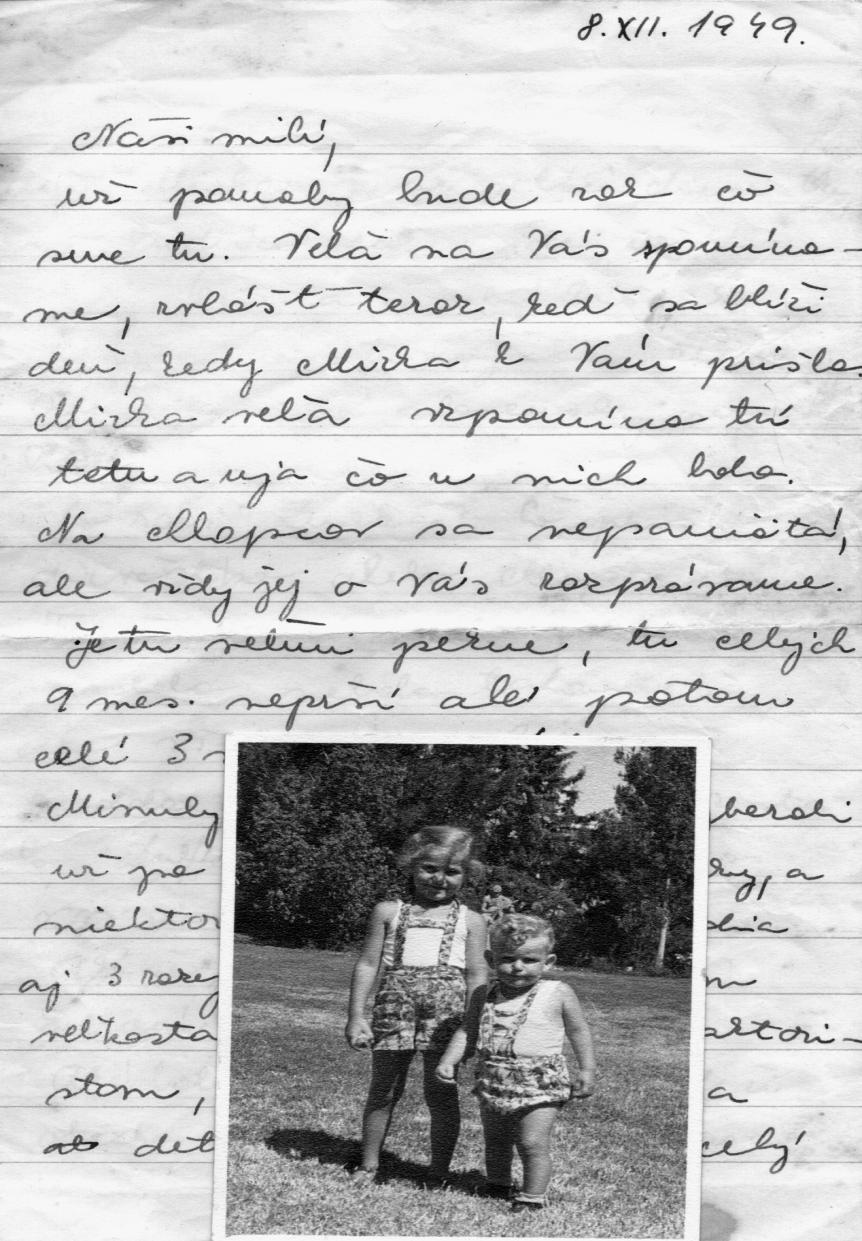 8. XII. 1949.
Naši milí,
už pomaly bude rok čo
sme tu. Velä na Vás spomína-
me, zvlášť teraz, keď sa blíži
deň, kedy Mirka k Vám prišla.
Mirka velä vzpomína tú
tetu a uja čo u nich bola.
Na sa nepamätá,
ale vždy jej o Vás rozprávame.
Je tu velmi pekne, tu celých
9 mes. neprší ale potom
celé 3
Minulý berali
už po a
niektor
aj 3 razy
velkosta
stom, a
dét celý